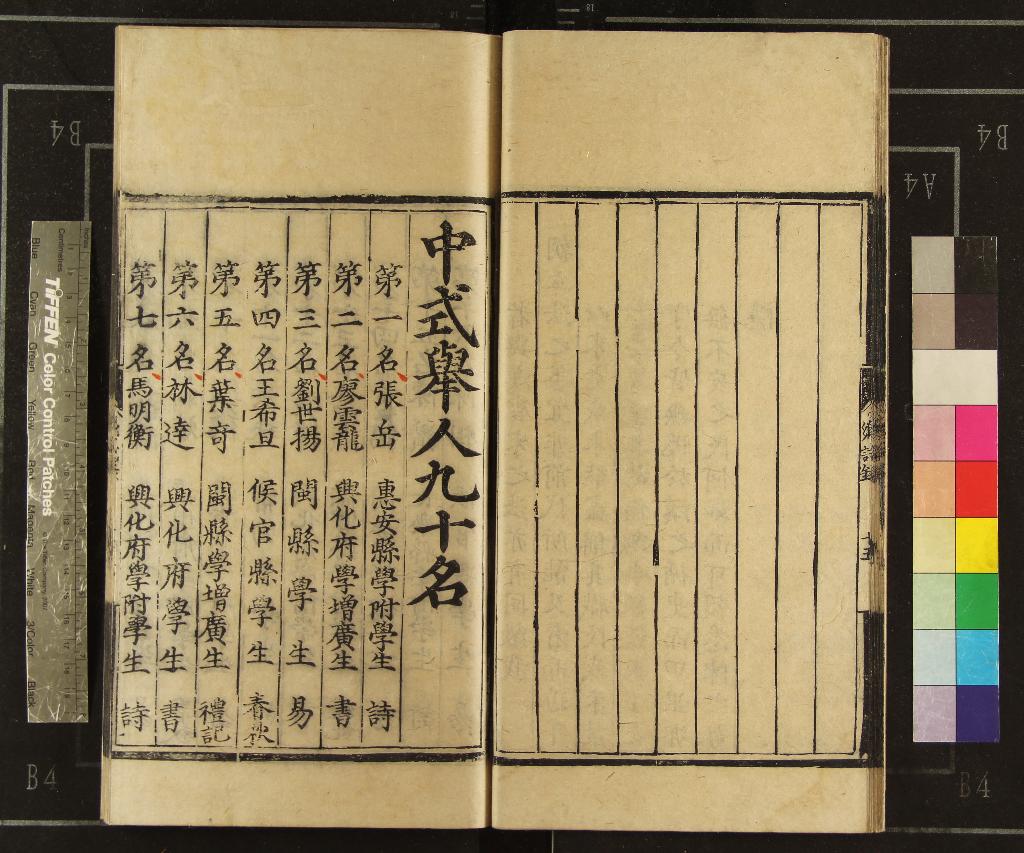 中式舉人九十名
第一名張岳 惠安縣學附學生 詩
第二名廖雲龍 興化府學增廣生 書
第三名劉世揚 閩縣學生 易
第四名王希旦 候官縣學生 春秋
第五名葉竒 閩縣學增廣生 禮記
第六名林達 興化府學生 書
第七名馬明衡 興化府學附學生 詩
TIFFEN Color Control Patches
Blue Cyan Green Yellow Red Magenta White 3/Color Black
Centimetres
Inches
B4
B4
A4
B4
B4